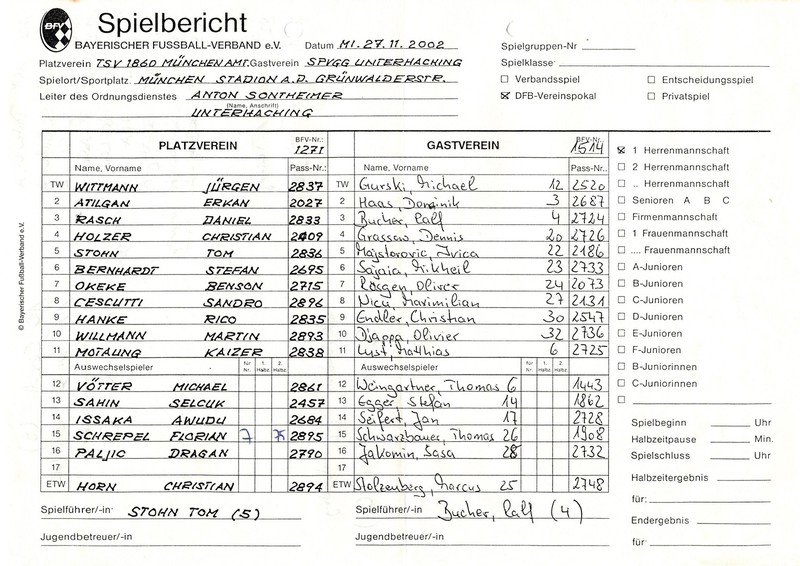 Spielbericht
BFV
BAYERISCHER FUSSBALL-VERBAND e.V.
Datum MI. 27.11.2002
Spielgruppen-Nr
Platzverein TSV 1860 MÜNCHEN AMT. Gastverein SPVGG UNTERHACHING
Spielklasse
Spielort/Sportplatz MÜNCHEN STADION A.D. GRÜNWALDERSTR.
☐ Verbandsspiel ☐ Entscheidungsspiel
Leiter des Ordnungsdienstes ANTON SONTHEIMER
☒ DFB-Vereinspokal ☐ Privatspiel
(Name, Anschrift)
UNTERHACHING
PLATZVEREIN BFV-Nr.: 1271 GASTVEREIN BFV-Nr.: 1514
Name, Vorname Pass-Nr.: Name, Vorname Pass-Nr.:
TW WITTMANN JÜRGEN 2837 TW Gurski, Michael 12 2520
2 ATILGAN ERKAN 2027 2 Haas, Dominik 3 2687
3 RASCH DANIEL 2833 3 Bucher, Ralf 4 2724
4 HOLZER CHRISTIAN 2409 4 Grassow, Dennis 20 2726
5 STOHN TOM 2836 5 Majstorovic, Ivica 22 2186
6 BERNHARDT STEFAN 2695 6 Sajaia, Mikheil 23 2733
7 OKEKE BENSON 2715 7 Rösgen, Oliver 24 2073
8 CESCUTTI SANDRO 2896 8 Nicu, Maximilian 27 2131
9 HANKE RICO 2835 9 Endler, Christian 30 2547
10 WILLMANN MARTIN 2893 10 Djappa, Olivier 32 2736
11 MOTAUNG KAIZER 2838 11 Lust, Matthias 6 2725
Auswechselspieler für Nr. 1. Halbz. 2. Halbz. Auswechselspieler für Nr. 1. Halbz. 2. Halbz.
12 VÖTTER MICHAEL 2861 12 Weingartner, Thomas 6 1443
13 SAHIN SELCUK 2457 13 Egger, Stefan 14 1862
14 ISSAKA AWUDU 2684 14 Seifert, Jan 17 2728
15 SCHREPEL FLORIAN 7 2895 15 Schwarzbauer, Thomas 26 1908
16 PALJIC DRAGAN 2790 16 Jakomin, Sasa 28 2732
17 17
ETW HORN CHRISTIAN 2894 ETW Stolzenberg, Marcus 25 2748
Spielführer/-in STOHN TOM (5) Spielführer/-in Bucher, Ralf (4)
Jugendbetreuer/-in Jugendbetreuer/-in
☒ 1 Herrenmannschaft
☐ 2 Herrenmannschaft
☐ .. Herrenmannschaft
☐ Senioren A B C
☐ Firmenmannschaft
☐ 1 Frauenmannschaft
☐ .... Frauenmannschaft
☐ A-Junioren
☐ B-Junioren
☐ C-Junioren
☐ D-Junioren
☐ E-Junioren
☐ F-Junioren
☐ B-Juniorinnen
☐ C-Juniorinnen
☐
Spielbeginn Uhr
Halbzeitpause Min.
Spielschluss Uhr
Halbzeitergebnis
für:
Endergebnis
für
© Bayerischer Fußball-Verband e.V.